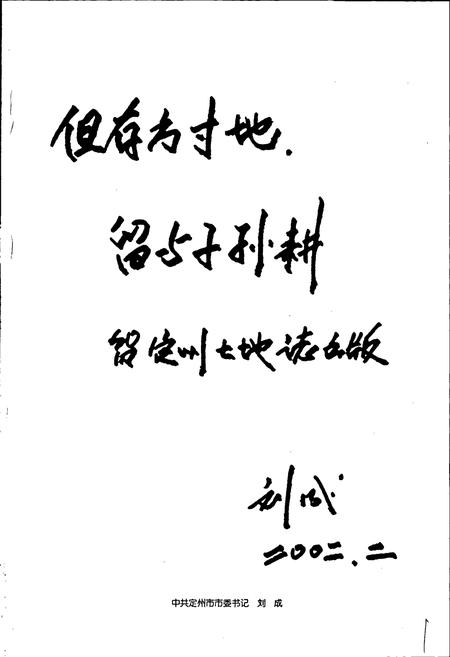 但存方寸地.
留与子孙耕
贺定州土地志出版
刘成
二00二.二
中共定州市市委书记 刘 成